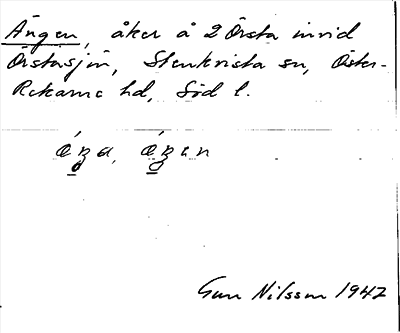 Ängen, åker å 2 Örsta invid
Örstasjön, Stenkvista sn, Öster-
Rekarne hd, Söd l.
Gun Nilsson 1947